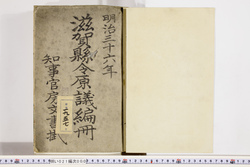 明治三十六年
滋賀縣令原議編冊
知事官房文書掛